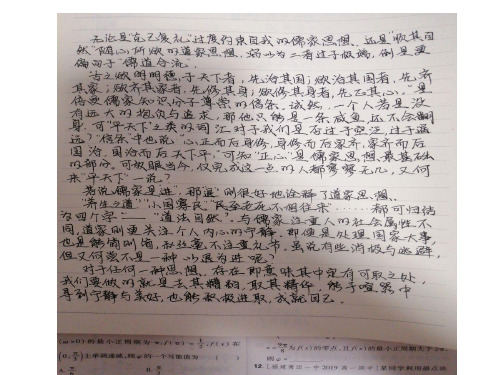 无论是"克己复礼"过度约束自我的儒家思想、还是"顺其自
然"随心所欲的道家思想、窃以为二者过于极端,倒是更
偏向于"儒道合流"。
"古之欲明明德于天下者,先治其国;欲治其国者,先齐
其家;欲齐其家者,先修其身;欲修其身者,先正其心。"是
倍受儒家知识分子尊崇的信条。诚然,一个人若是没
有远大的抱负与追求,那他只能是一条咸鱼,还不会翻
身,可"平天下"之类的词汇对于我们是否过于空泛,过于遥
远?信条中也说"心正而后身修,身修而后家齐,家齐而后
国治,国治而后天下平。"可知"正心"是儒家思想最基础
的部分,可放眼当今,仅完成这一点的人都寥寥无几,又何
来"平天下"一说?
若说儒家是"进",那"退"则很好地诠释了道家思想、
"养生之道""小国寡民""民至老死不相往来"……都可归结
为四个字——"道法自然"。与儒家注重人的社会属性不
同,道家则更关注个人内心的宁静,即便是处理国家大事,
也是能简则简,
不注重礼节。虽说有些消极与逃避,
但又何尝不是一种以退为进呢?
对于任何一种思想、存在即意味其中定有可取之处,
我们要做的就是去其糟粕,取其精华,能于喧嚣中
寻到宁静与美好,也能积极进取,成就自己。
(ω>0)的最小正周期为π,
在
上单调递减,则φ的一个可能值为( )
为f(x)的零点,且f(x)的最小正周期大于2π,
则φ=
12.
2019高一期中]某同学利用描点法